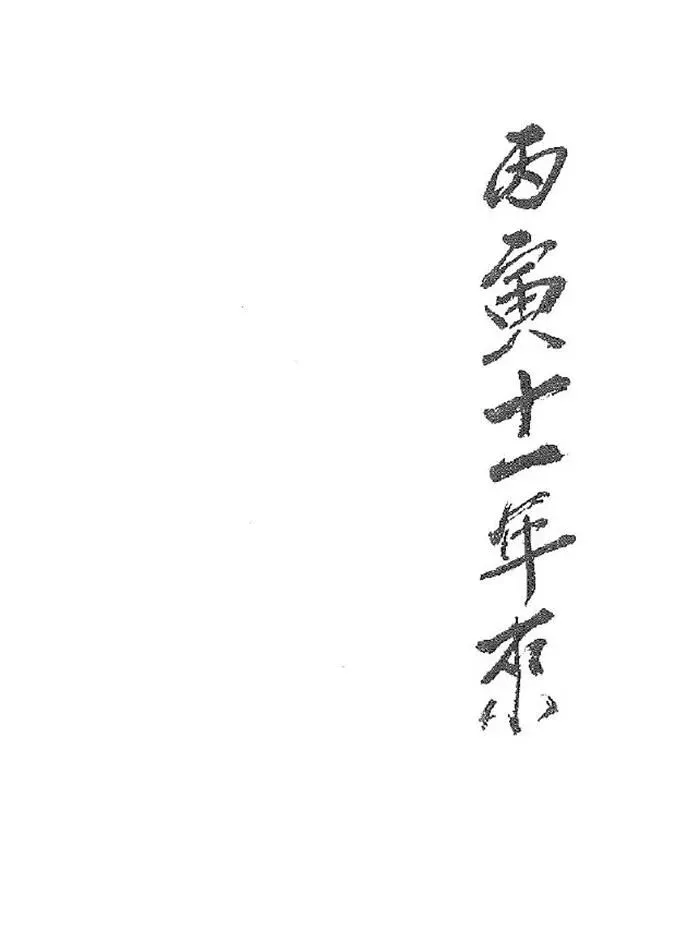 丙寅十一年